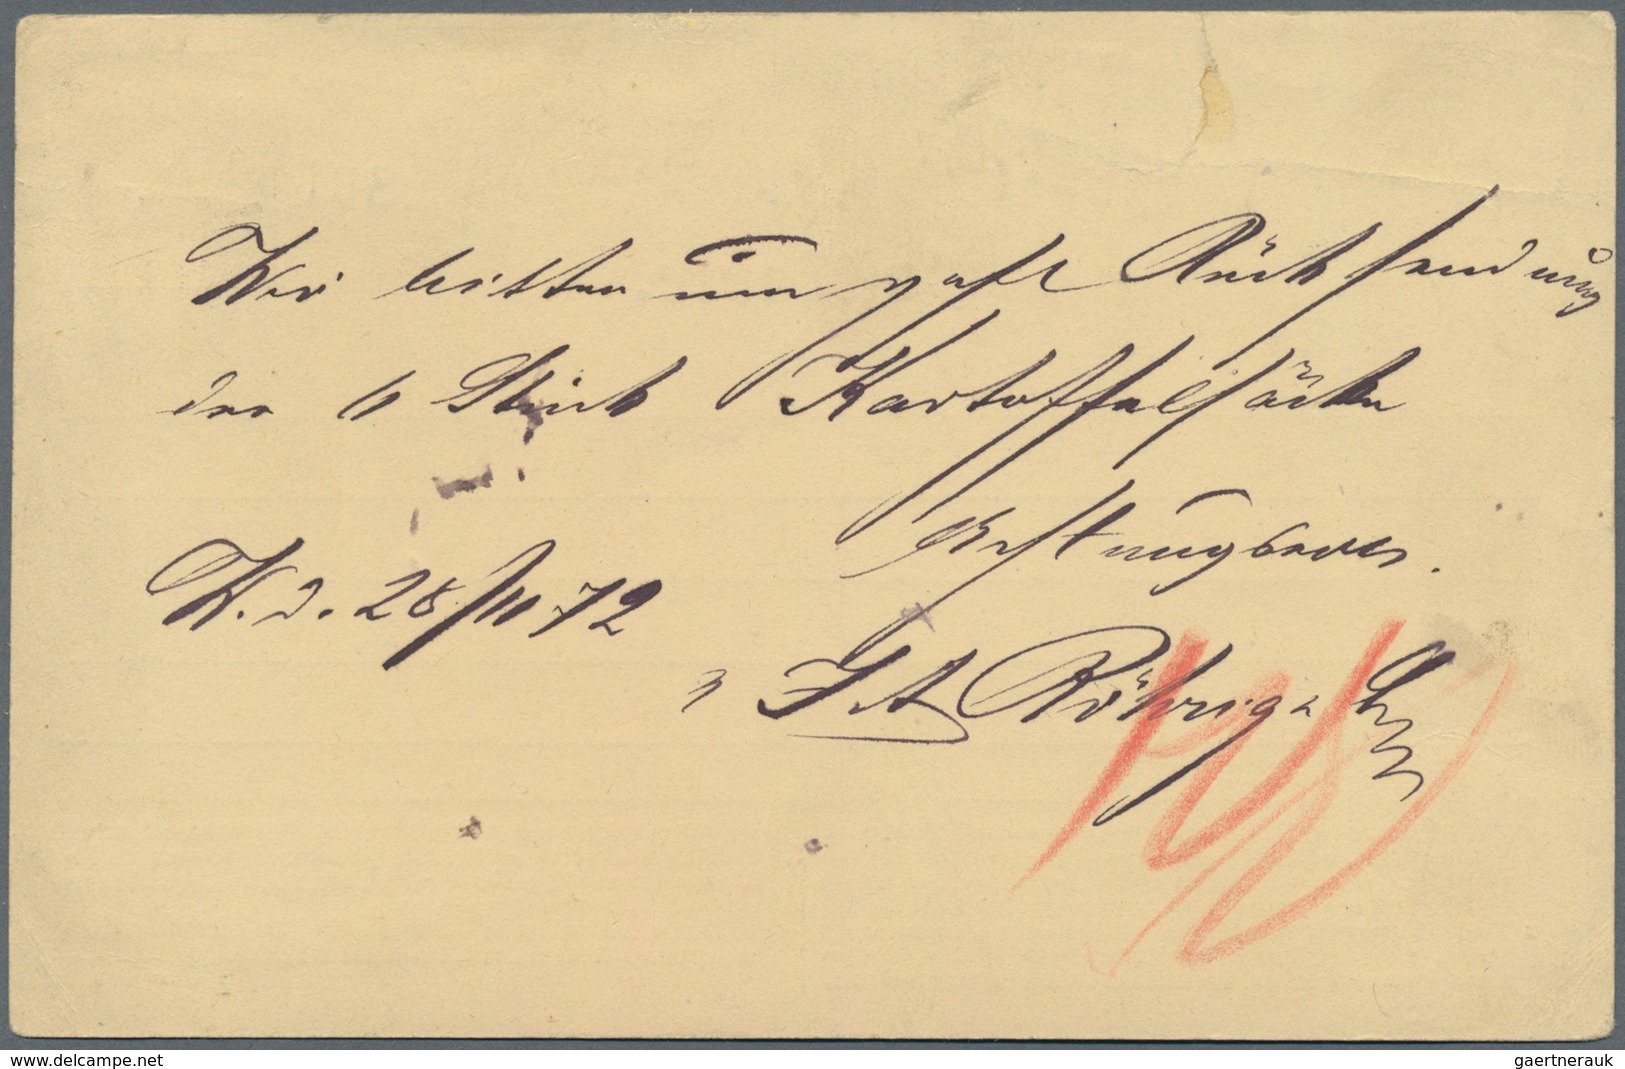 Wir bitten um gefl Rücksendung
der 11 Stück Kartoffelsäcke
Achtungsvoll.
W. d. 28/11 72
J A Röhrig &
www.delcampe.net
gaertnerauk